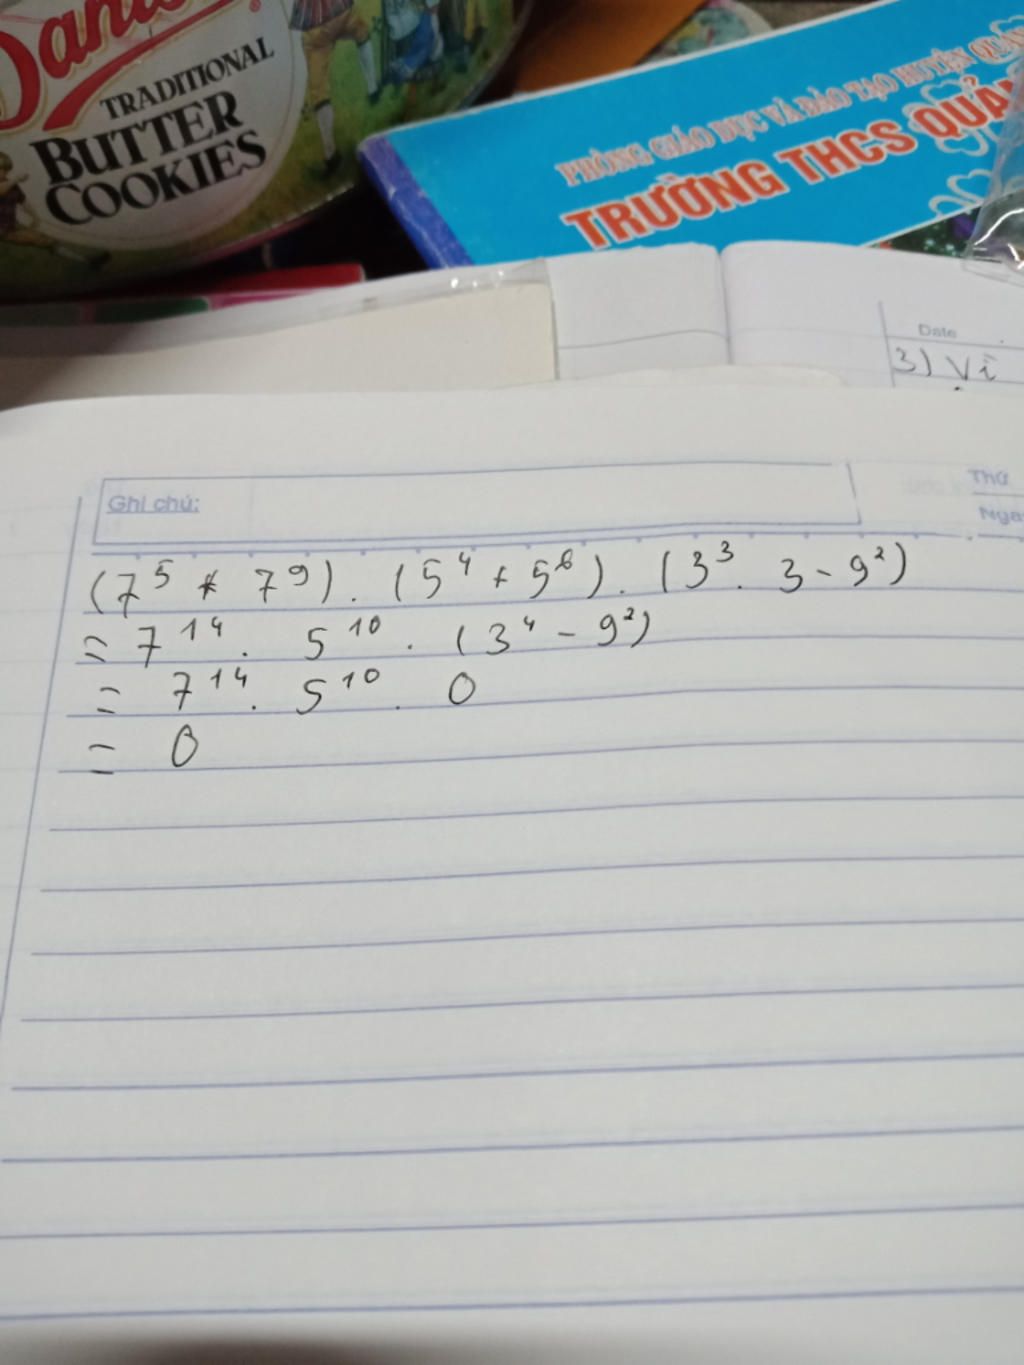 TRADITIONAL
BUTTER
COOKIES
PHÒNG GIÁO DỤC VÀ ĐÀO TẠO HUYỆN
TRƯỜNG THCS
Date
3) Vì
Ghi chú:
Thứ
(7⁵ + 7⁹) . (5⁴ + 5⁶) . (3³ . 3 - 9²)
= 7¹⁴ . 5¹⁰ . (3⁴ - 9²)
= 7¹⁴ . 5¹⁰ . 0
= 0